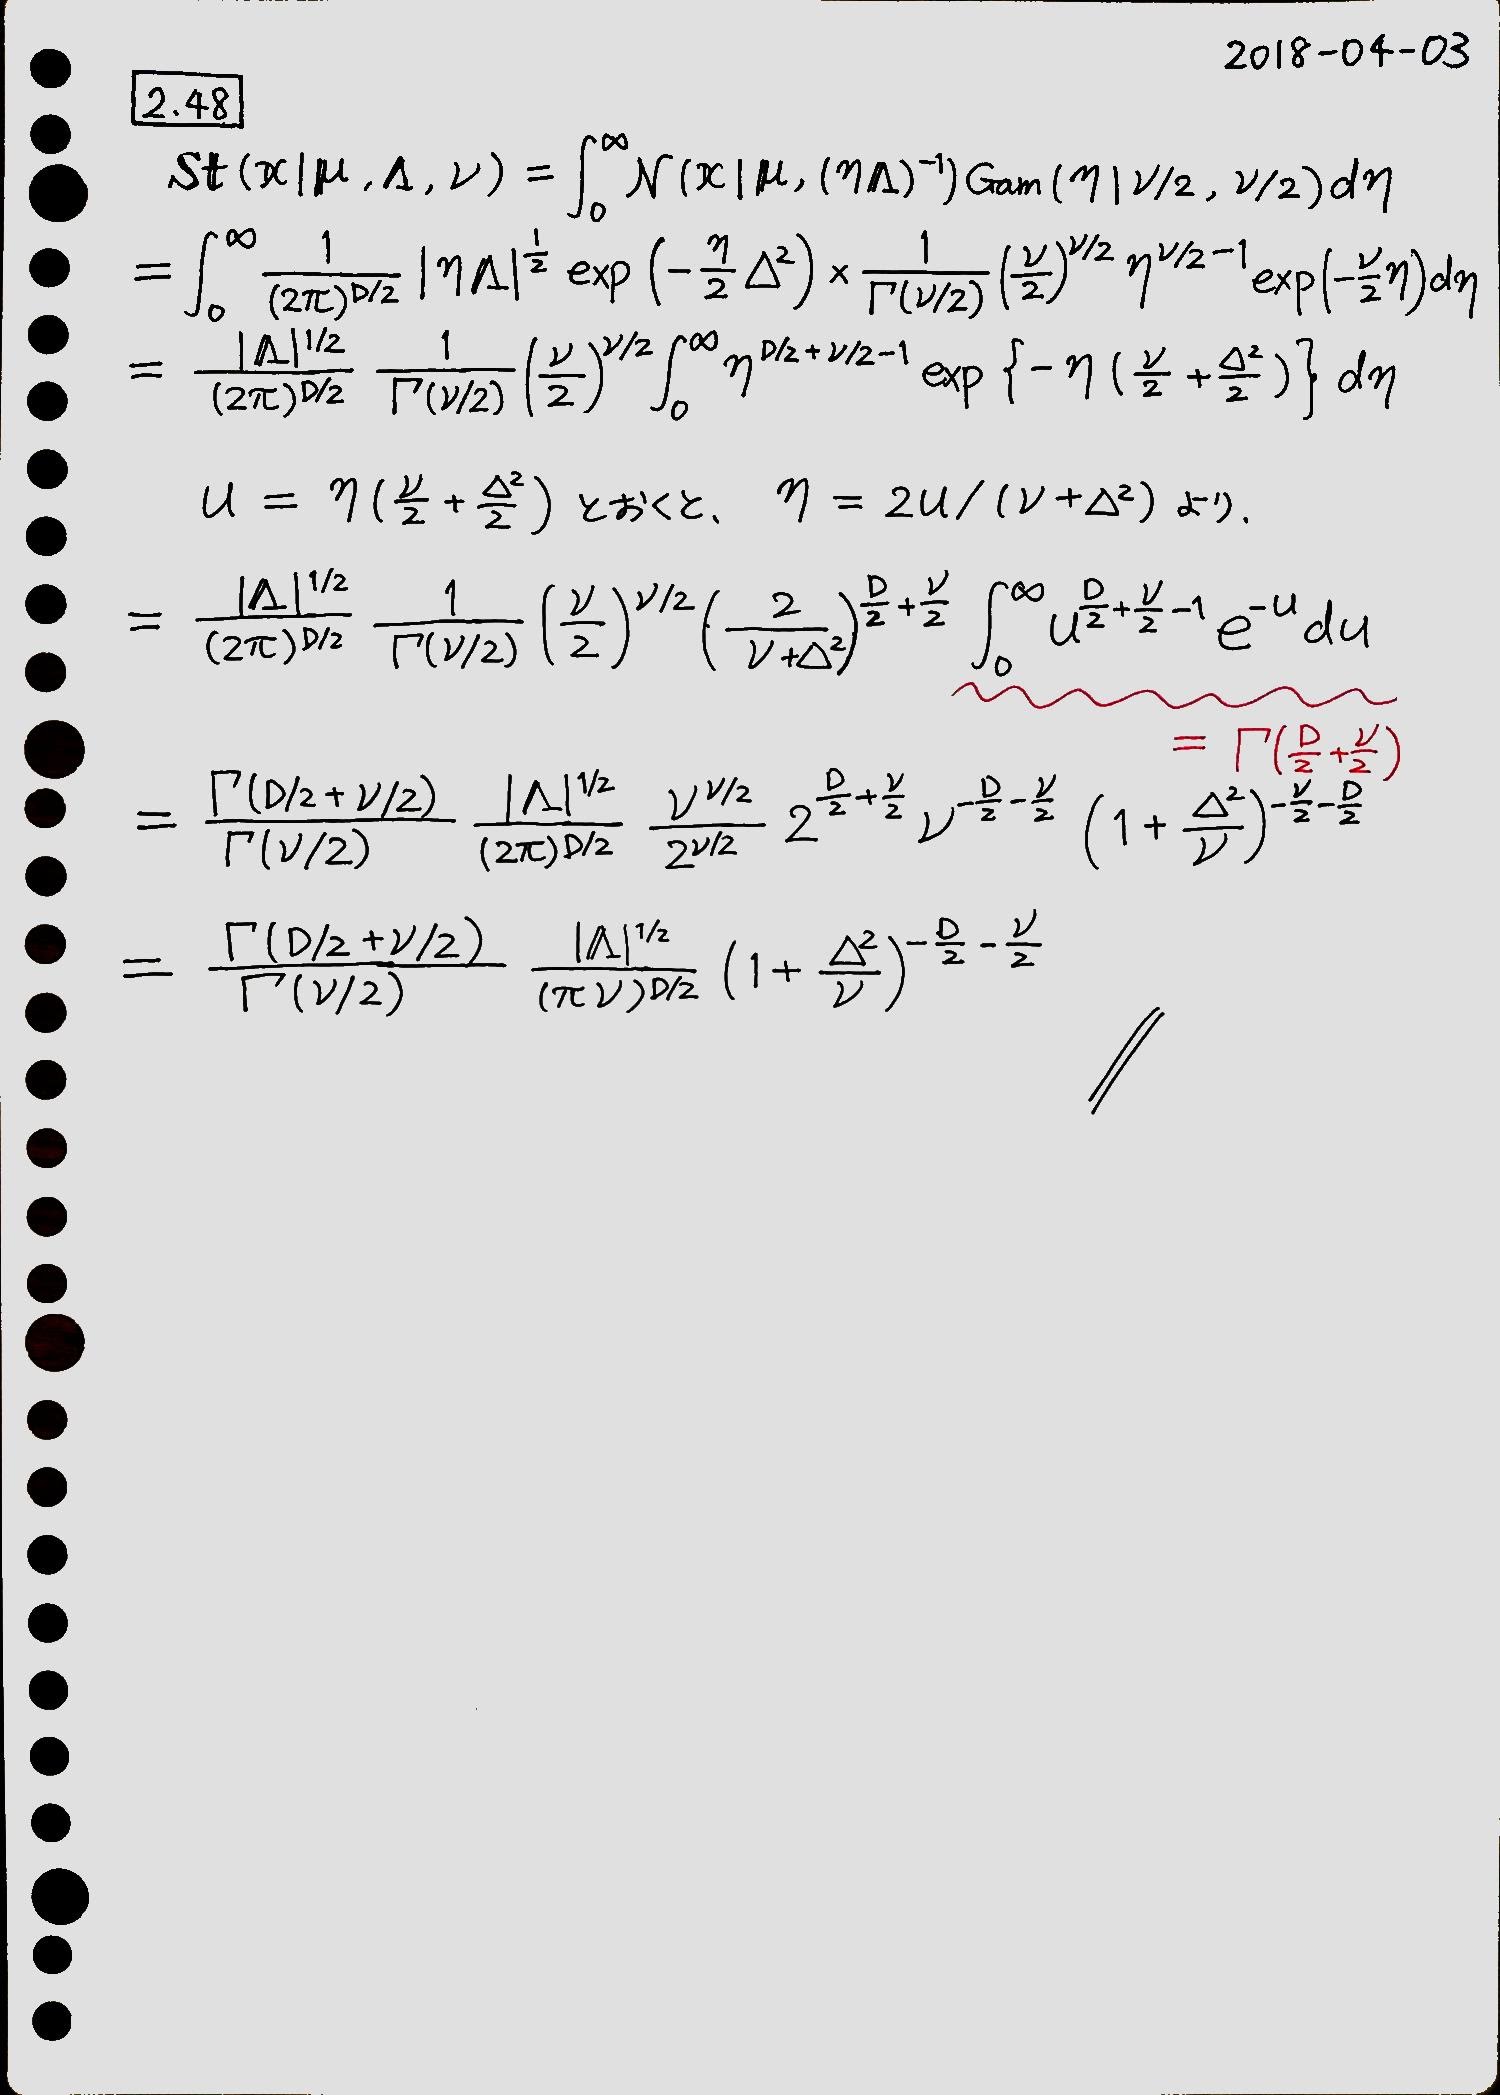 2018-04-03
2.48
St(x|μ, Λ, ν) = ∫₀^∞ N(x|μ, (ηΛ)⁻¹) Gam(η|ν/2, ν/2) dη
= ∫₀^∞ \frac{1}{(2π)^{D/2}} |ηΛ|^{\frac{1}{2}} exp(-\frac{η}{2}Δ²) × \frac{1}{Γ(ν/2)} (\frac{ν}{2})^{ν/2} η^{ν/2-1} exp(-\frac{ν}{2}η) dη
= \frac{|Λ|^{1/2}}{(2π)^{D/2}} \frac{1}{Γ(ν/2)} (\frac{ν}{2})^{ν/2} ∫₀^∞ η^{D/2+ν/2-1} exp{-η(\frac{ν}{2} + \frac{Δ²}{2})} dη
u = η(\frac{ν}{2} + \frac{Δ²}{2}) とおくと、 η = 2u/(ν+Δ²) より、
= \frac{|Λ|^{1/2}}{(2π)^{D/2}} \frac{1}{Γ(ν/2)} (\frac{ν}{2})^{ν/2} (\frac{2}{ν+Δ²})^{\frac{D}{2}+\frac{ν}{2}} ∫₀^∞ u^{\frac{D}{2}+\frac{ν}{2}-1} e^{-u} du
= Γ(\frac{D}{2}+\frac{ν}{2})
= \frac{Γ(D/2+ν/2)}{Γ(ν/2)} \frac{|Λ|^{1/2}}{(2π)^{D/2}} \frac{ν^{ν/2}}{2^{ν/2}} 2^{\frac{D}{2}+\frac{ν}{2}} ν^{-\frac{D}{2}-\frac{ν}{2}} (1+\frac{Δ²}{ν})^{-\frac{ν}{2}-\frac{D}{2}}
= \frac{Γ(D/2+ν/2)}{Γ(ν/2)} \frac{|Λ|^{1/2}}{(πν)^{D/2}} (1+\frac{Δ²}{ν})^{-\frac{D}{2}-\frac{ν}{2}}
//